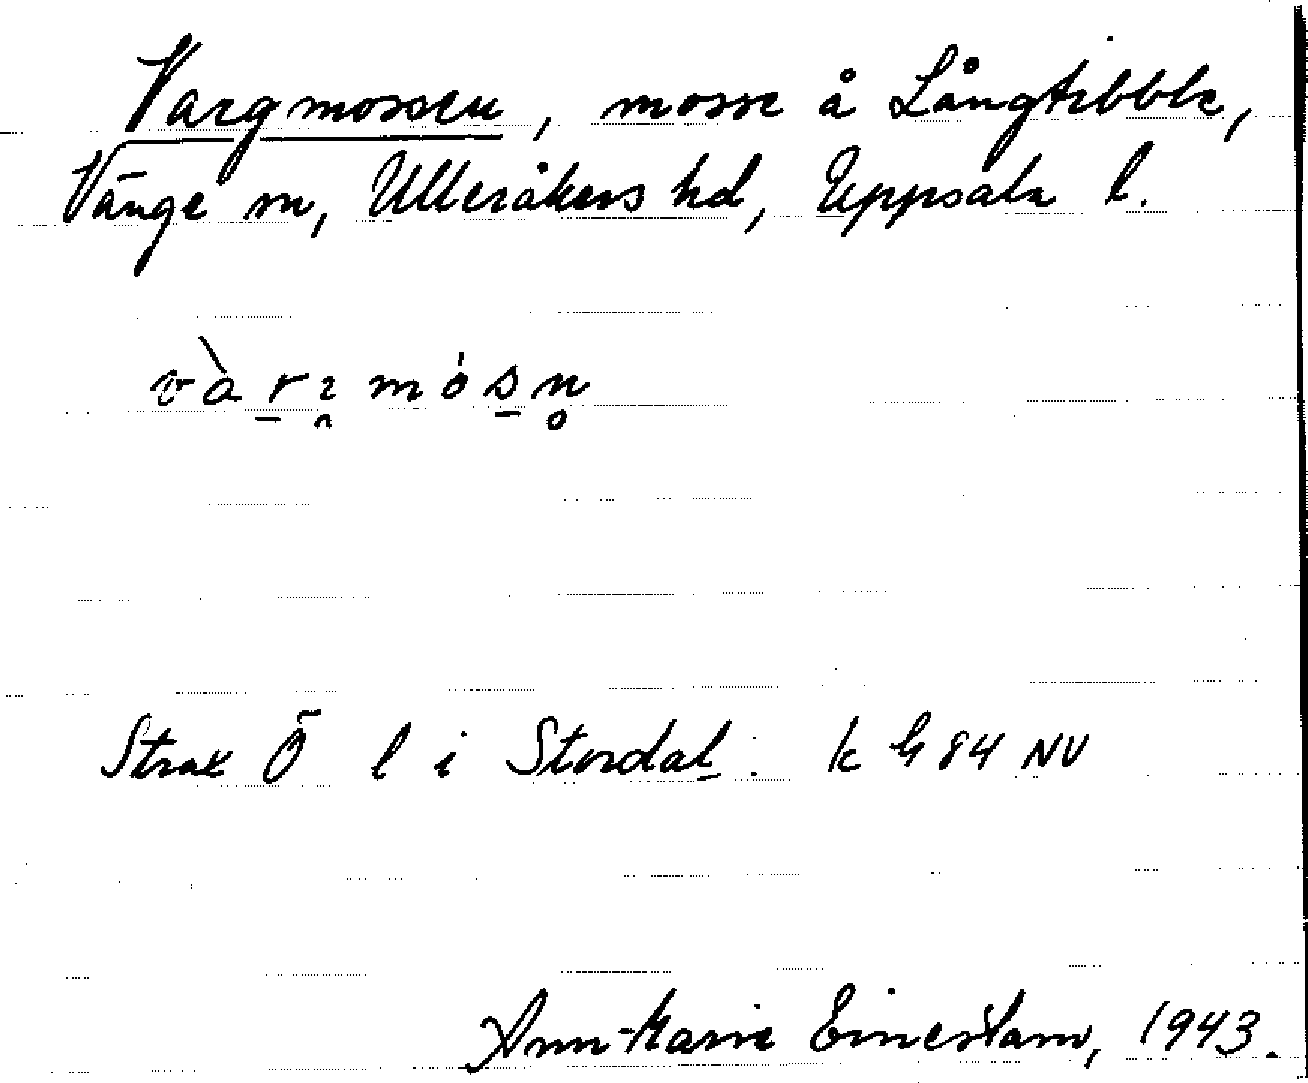 Vargmossen, mosse å Långtibble,
Vänge sn, Ulleråkers hd, Uppsala l.
vàrımósn̥
Strax Ö l i Stordal: k G 84 NV
Ann-Marie Einerstam, 1943.